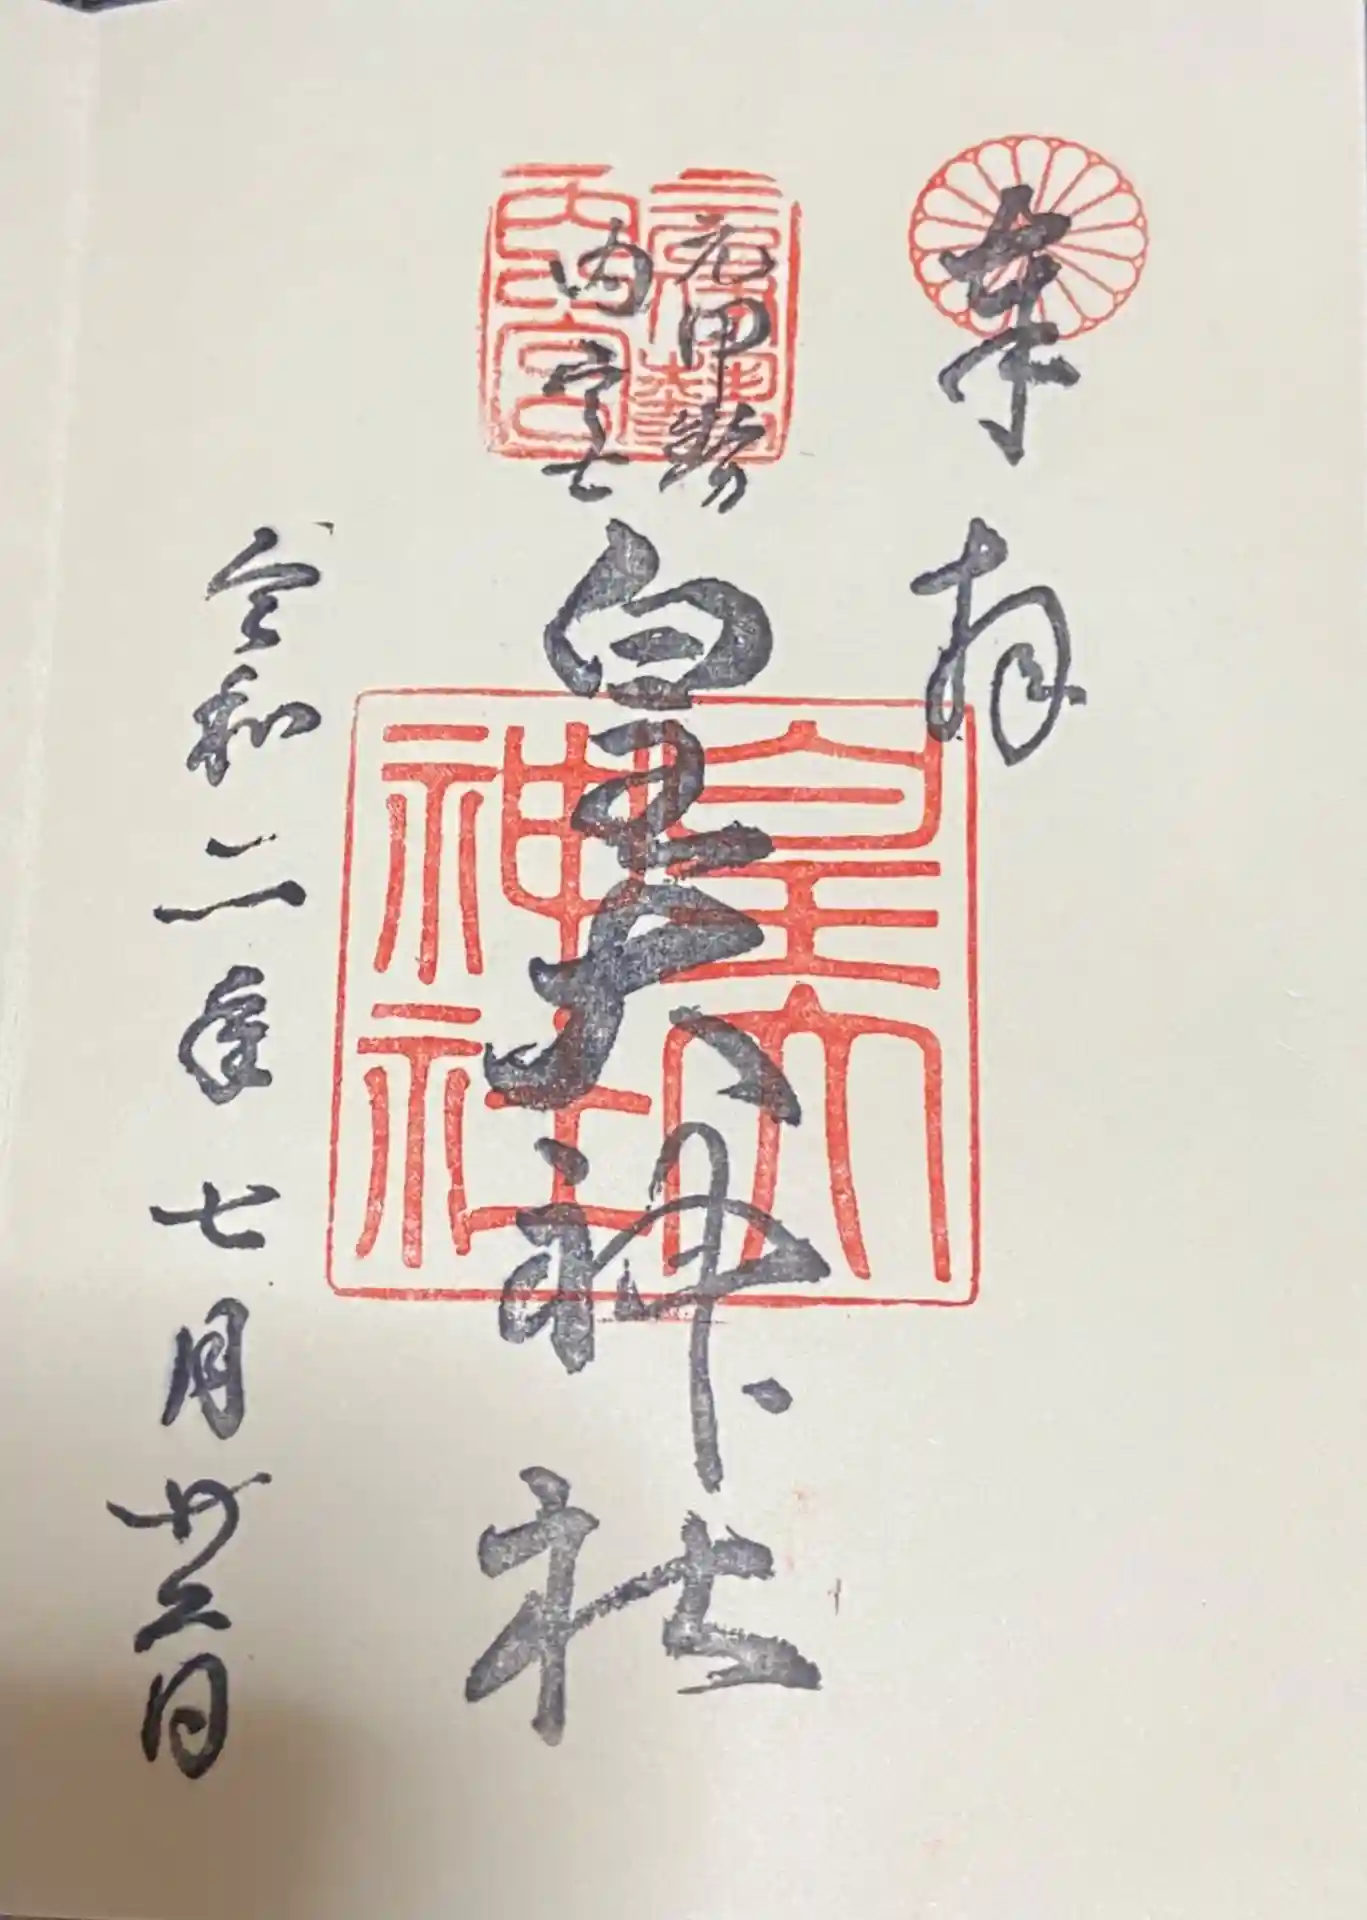 奉拝
元伊勢
内宮
皇大神社
令和二年七月廿六日
元伊勢
内宮
皇大
神社